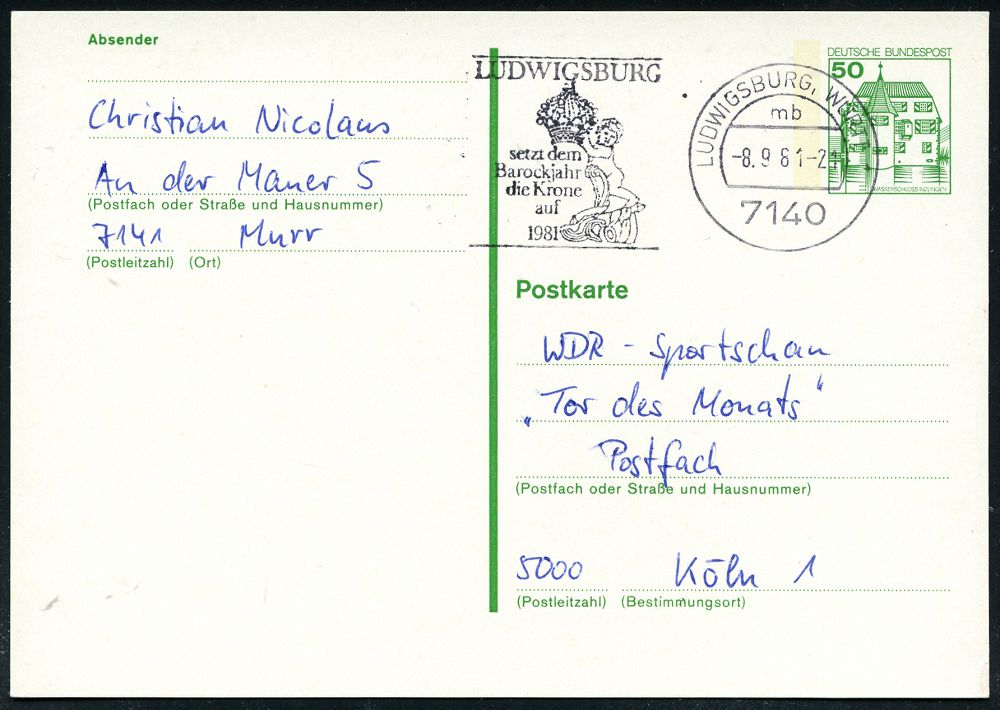 Absender
Christian Nicolaus
An der Mauer 5
(Postfach oder Straße und Hausnummer)
7141 Murr
(Postleitzahl) (Ort)
LUDWIGSBURG
setzt dem
Barockjahr
die Krone
auf
1981
LUDWIGSBURG, WÜRTT
mb
-8.9.81-21
7140
DEUTSCHE BUNDESPOST
50
WASSERSCHLOSS INZLINGEN
Postkarte
WDR - Sportschau
„Tor des Monats“
Postfach
(Postfach oder Straße und Hausnummer)
5000 Köln 1
(Postleitzahl) (Bestimmungsort)